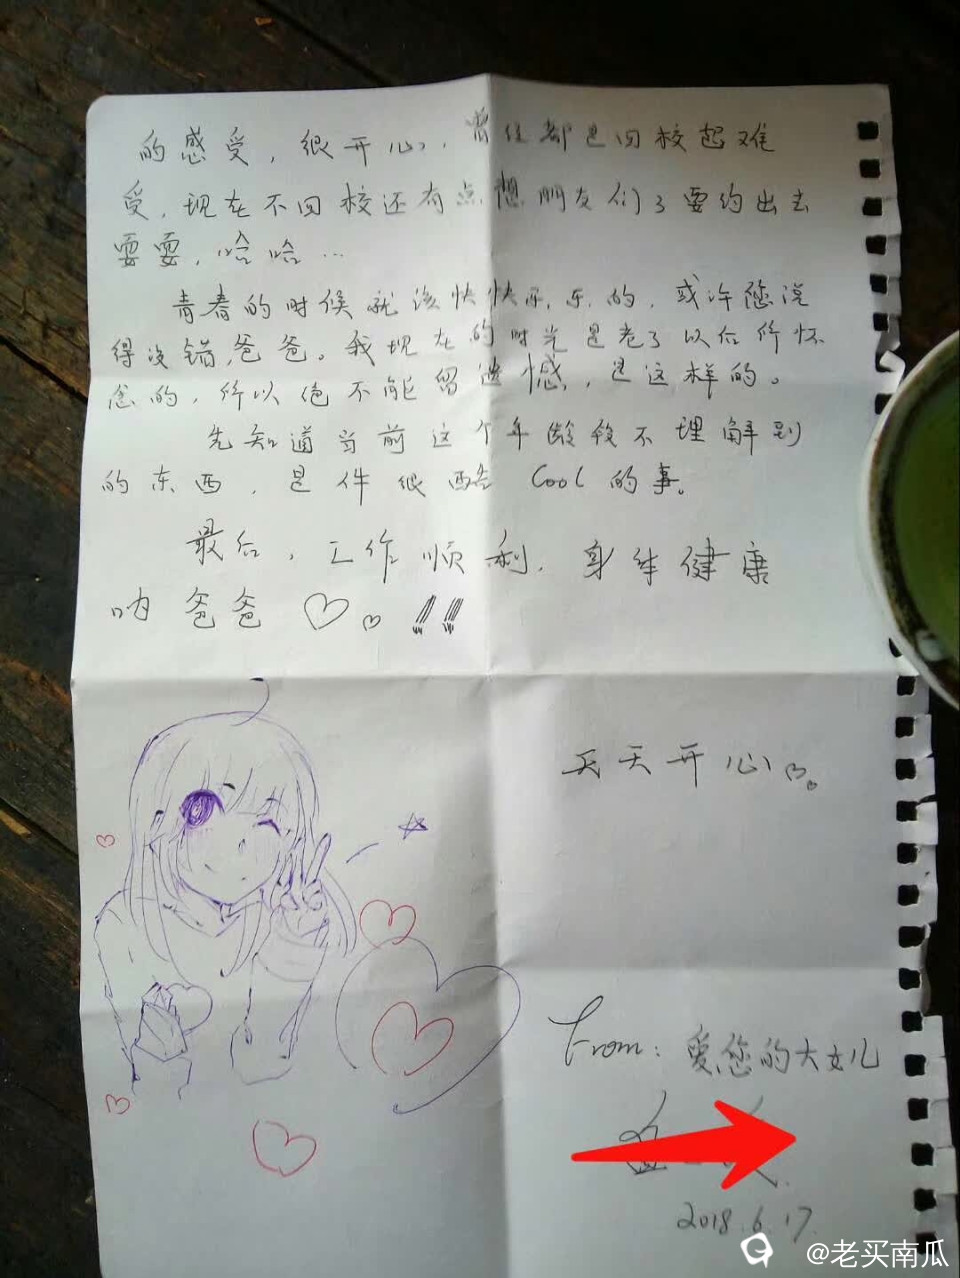 的感受，很开心，曾经都是回校起难
受，现在不回校还有点想朋友们了要约出去
耍耍，哈哈…
青春的时候就该快快乐乐的，或许您说
得没错，爸爸。我现在的时光是老了以后所怀
念的，所以绝不能留遗憾，是这样的。
先知道当前这个年龄段不理解到
的东西，是件很酷Cool的事。
最后，工作顺利，身体健康
呐爸爸♡♡!!
天天开心♡。
From：爱您的大女儿
2018.6.17.
@老买南瓜